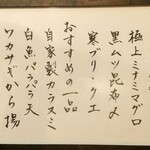 極上ミナミマグロ
黒ムツ昆布〆
寒ブリ・クエ
おすすめの一品
自家製カラスミ
白魚パラパラ天
ワカサギから揚